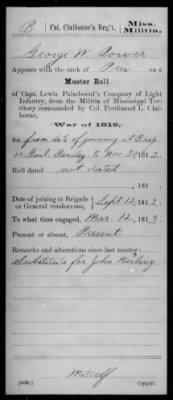 B | Col. Claiborne's Reg't. | Miss. Militia.
George W Conver
Appears with the rank of Priv on a
Muster Roll
of Capt. Lewis Paimboeuf's Company of Light
Infantry, from the Militia of Mississippi Ter-
ritory commanded by Col. Ferdinand L. Clai-
borne,
War of 1812,
for from date of joining at Brig
or Genl. Rendez to Nov 30, 1812.
Roll dated not dated
, 181 .
Date of joining at Brigade
or General rendezvous, } Sept 12, 1812.
To what time engaged, Mar. 12, 1813.
Present or absent, Present
Remarks and alterations since last muster:
Substitute for John
Metcalf
Copyist.